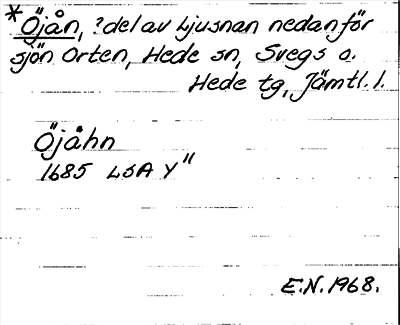 *Öjån, ?del av Ljusnan nedanför
sjön Orten, Hede sn, Svegs o.
Hede tg, Jämtl. l.
Öjåhn
1685 LSA Y"
E.N. 1968.